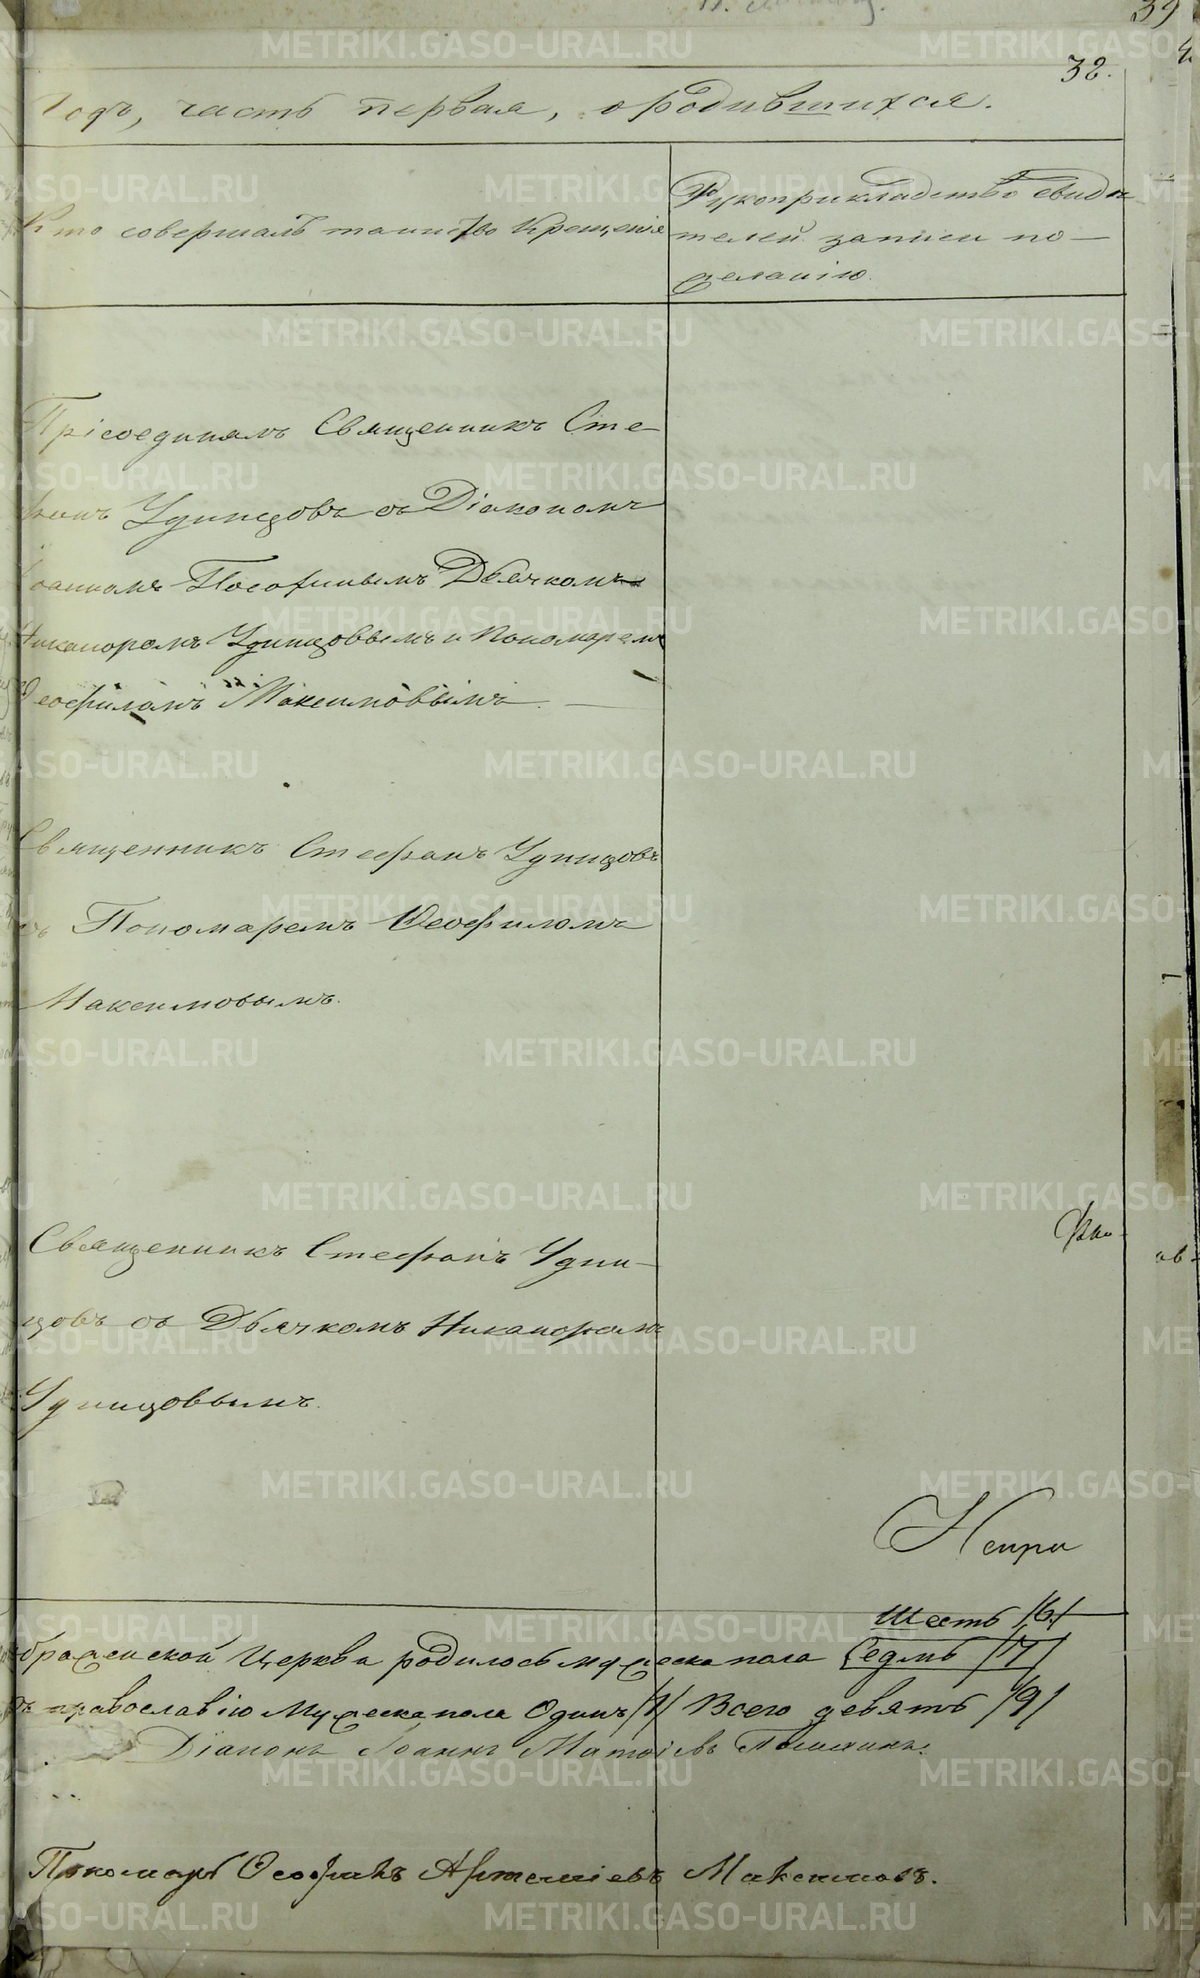 39
38.
Годъ, часть первая, о родившихся.
Кто совершалъ таинство Крещенія
Рукоприкладство свидѣ
телей записи по
желанію.
Прісоединялъ Священникъ Сте
фанъ Удинцовъ съ Діакономъ
Іоанномъ Дьячкомъ
Никаноромъ Удинцовымъ и Пономаремъ
Феофиломъ Максимовымъ.
Священникъ Стефанъ Удинцовъ
съ Пономаремъ Феофиломъ
Максимовымъ.
Священникъ Стефанъ Удин
цовъ съ Дьячкомъ Никаноромъ
Удинцовымъ.
Шесть /6/
браженской Церкви родилось мужеска пола Седмь /7/
православію Мужеска пола Одинъ /1/ Всего девять /9/
Діаконъ Іоаннъ
Пономарь Максимовъ.
METRIKI.GASO-URAL.RU